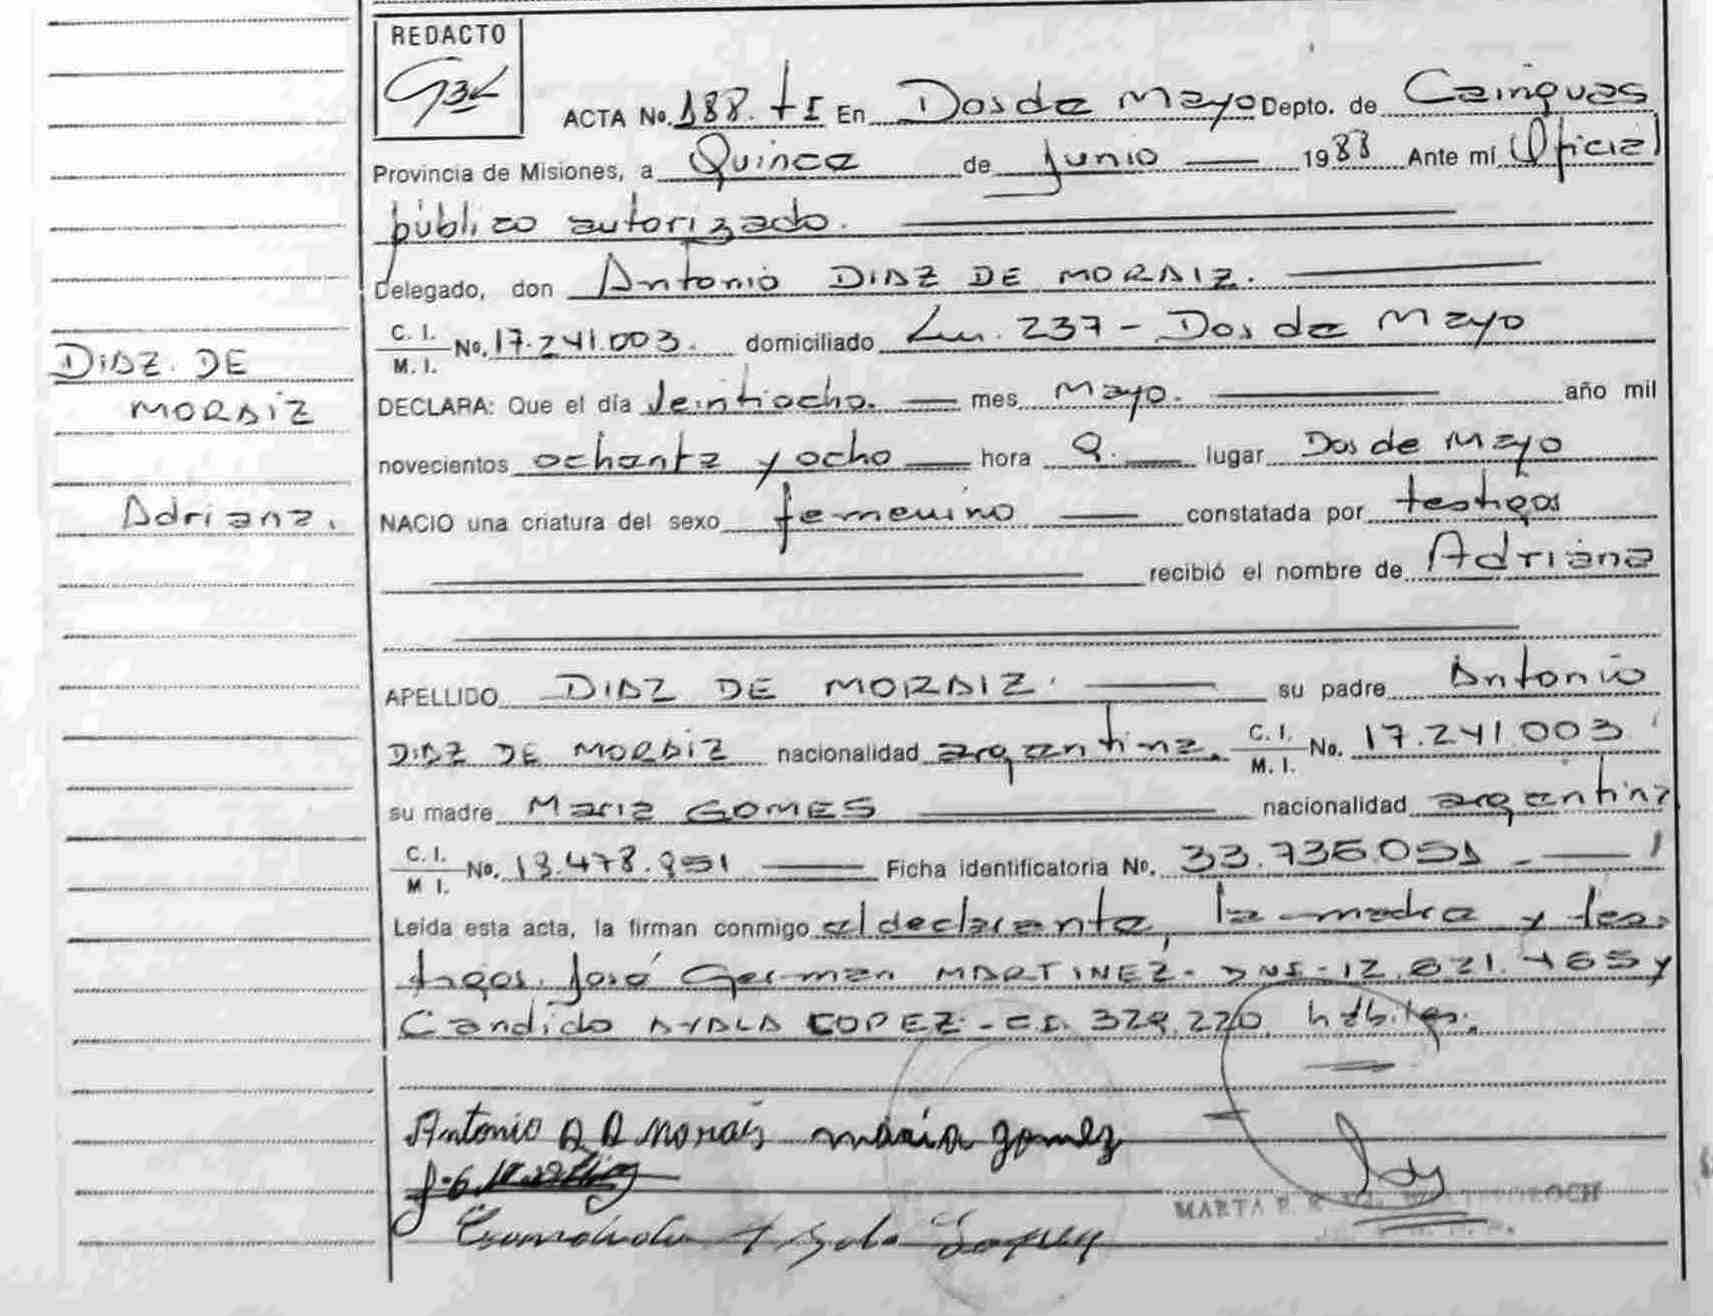 REDACTO
ACTA No. 188. tI En Dos de Mayo Depto. de Cainguas
Provincia de Misiones, a Quince de junio 1988 Ante mi Oficial
público autorizado.
Delegado, don Antonio DIAZ DE MORAIZ.
C. I. / M. I. No. 17.241.003. domiciliado Lu. 237 - Dos de Mayo
DIAZ. DE
MORAIZ
Adriana.
DECLARA: Que el día Veintiocho. mes Mayo. año mil
novecientos ochenta y ocho hora 9. lugar Dos de Mayo
NACIO una criatura del sexo femenino constatada por testigos
recibió el nombre de Adriana
APELLIDO DIAZ DE MORAIZ. su padre Antonio
DIAZ DE MORAIZ nacionalidad argentina. C. I. / M. I. No. 17.241.003
su madre Maria GOMES nacionalidad argentina
C. I. / M I. No. Ficha identificatoria No. 33.736.051
Leída esta acta, la firman conmigo el declarante, la madre y tes-
tigos. José German MARTINEZ - DNI - 12.621.465 y
Candido AYALA LOPEZ - C.I. 329.220. hábiles.
Antonio D D Morais maria gomez
MARTA